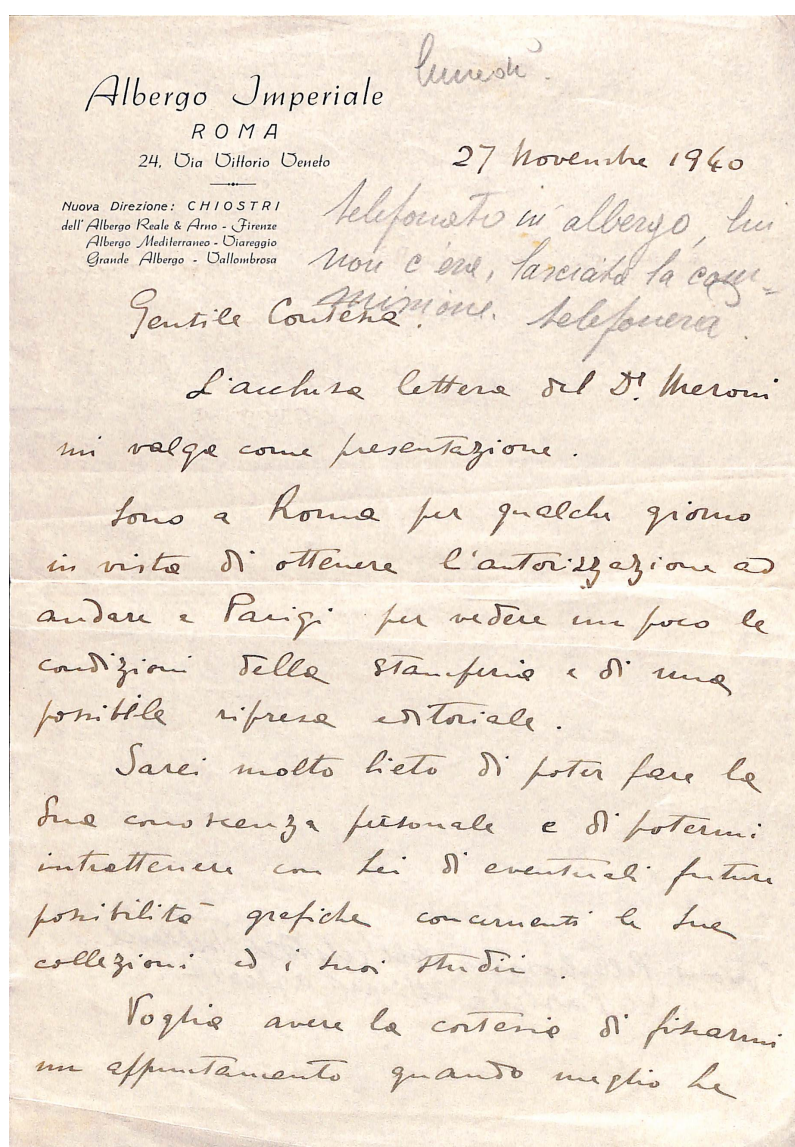 lunedì.
Albergo Imperiale
ROMA
24, Via Vittorio Veneto
27 Novembre 1940
Nuova Direzione: CHIOSTRI
dell' Albergo Reale & Arno - Firenze
Albergo Mediterraneo - Viareggio
Grande Albergo - Vallombrosa
telefonato in albergo, lui
non c'era, lasciata la com-
missione. telefonerà.
Gentile Contessa.
L'acclusa lettera del Dr. Meroni
mi valga come presentazione.
Sono a Roma per qualche giorno
in vista di ottenere l'autorizzazione ad
andare a Parigi per vedere un poco le
condizioni della stamperia e di una
possibile ripresa editoriale.
Sarei molto lieto di poter fare la
Sua conoscenza personale e di potermi
intrattenere con Lei di eventuali future
possibilità grafiche concernenti le Sue
collezioni ed i Suoi studii.
Voglia avere la cortesia di fissarmi
un appuntamento quando meglio Le